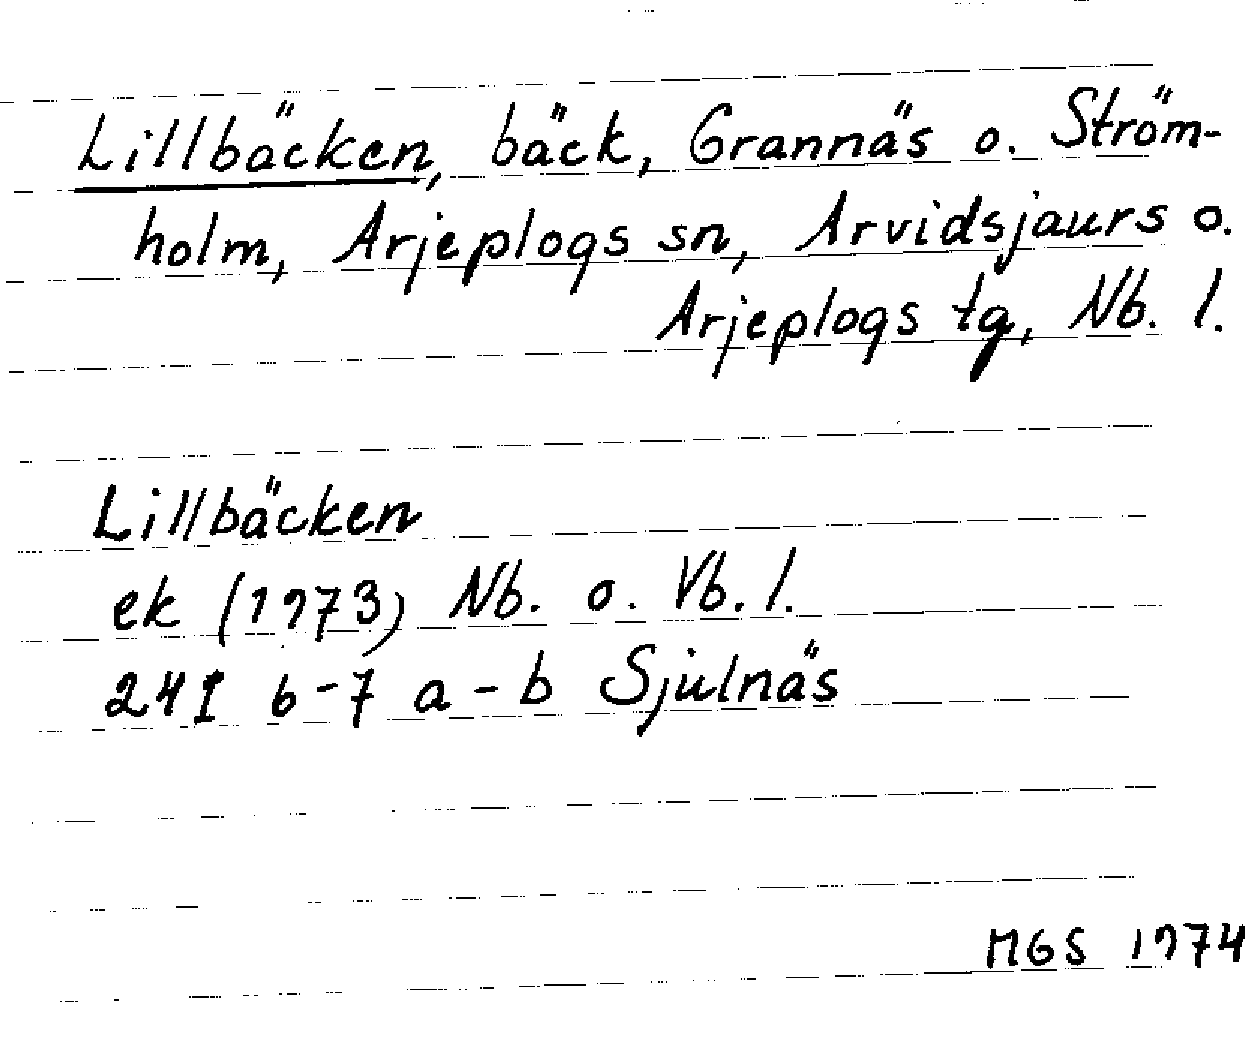 Lillbäcken, bäck, Grannäs o. Ström-
holm, Arjeplogs sn, Arvidsjaurs o.
Arjeplogs tg, Nb. l.
Lillbäcken
ek (1973) Nb. o. Vb. l.
24I 6-7 a-b Sjulnäs
MGS 1974